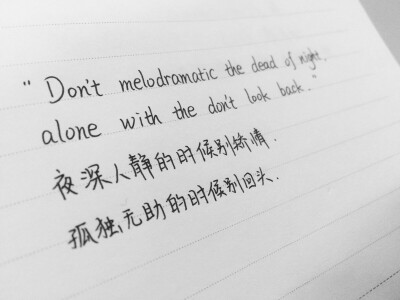 "Don't melodramatic the dead of night.
alone with the don't look back."
夜深人静的时候别矫情.
孤独无助的时候别回头.